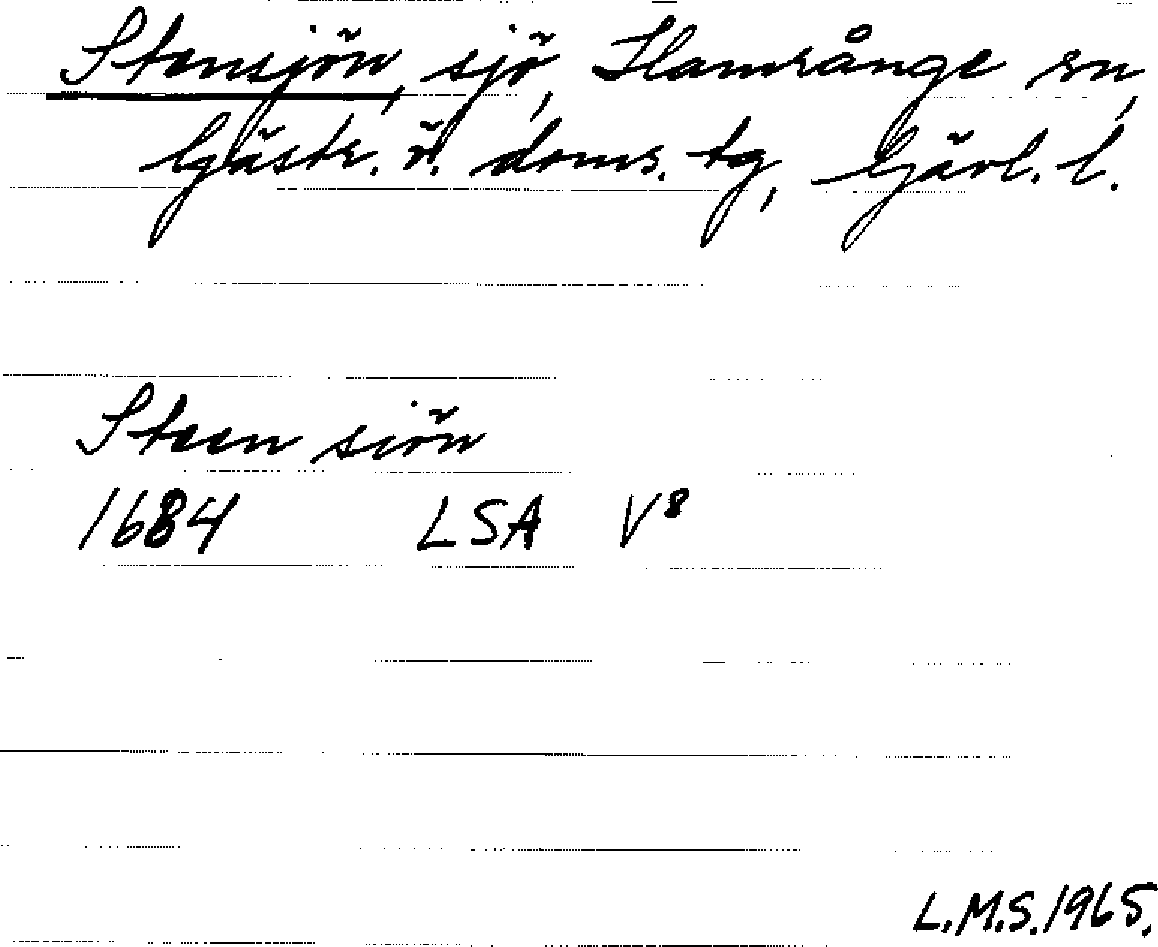 Stensjön, sjö, Hamrånge sn,
Gästr. ö. doms. tg, Gävl. l.
Steen siön
1684 LSA V8
L.M.S. 1965.